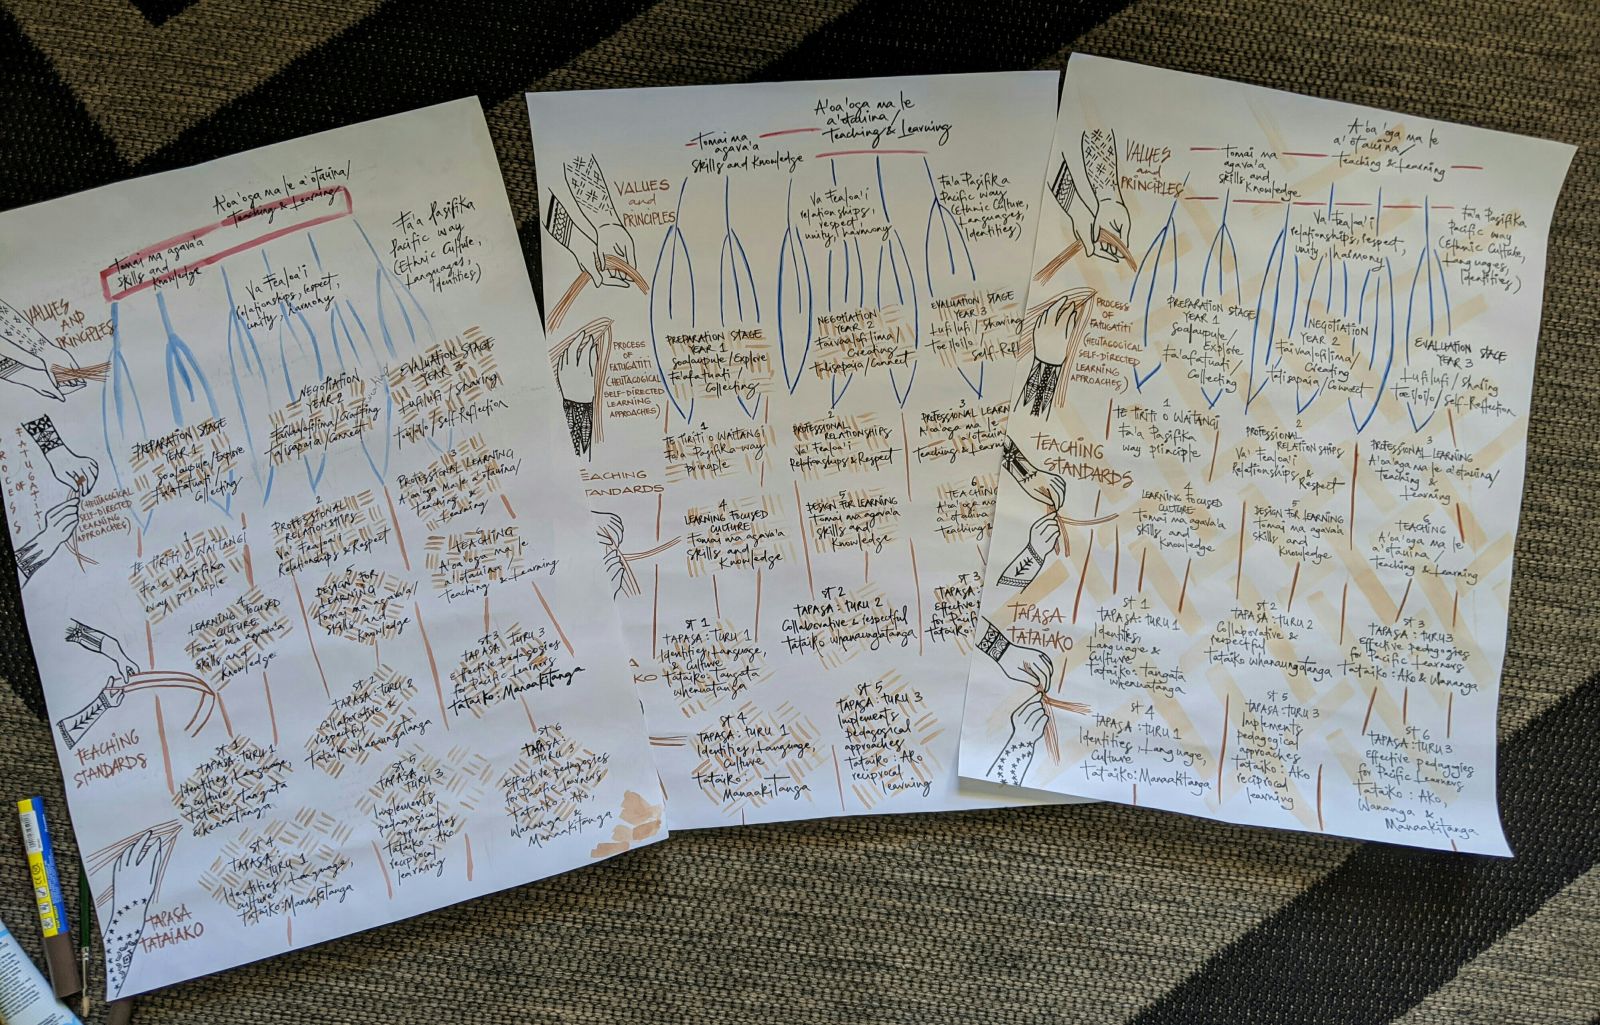 A'oa'oga ma le a'otauina/
Teaching & Learning
Tomai ma agava'a
skills and
Knowledge
Fa'a Pasifika
Pacific way
(Ethnic Culture,
Languages,
Identities)
Va Fealoa'i
relationships, respect,
unity, harmony
VALUES
AND
PRINCIPLES
PREPARATION STAGE
YEAR 1
Soalaupule/Explore
Fa'afatuati/
Collecting
NEGOTIATION
YEAR 2
Faivaalofilima/Crafting
Talisapaia/Connect
EVALUATION STAGE
YEAR 3
Lufilufi/sharing
Toe iloilo/Self-Reflection
PROCESS OF
FATUGATITI
(HEUTAGOGICAL
SELF-DIRECTED
LEARNING
APPROACHES)
1
TE TIRITI O WAITANGI
Fa'a Pasifika
way principle
2
PROFESSIONAL
RELATIONSHIPS
Va Fealoa'i
Relationships & Respect
3
PROFESSIONAL LEARNING
A'oa'oga ma le a'otauina/
Teaching &
Learning
4
LEARNING FOCUSED
CULTURE
Tomai ma agava'a
skills and
Knowledge
5
DESIGN FOR
LEARNING
Tomai ma agava'a/
Skills and
Knowledge
6
TEACHING
A'oa'oga ma le
a'otauina/
Teaching & Learning
TEACHING
STANDARDS
ST 1
TAPASA: TURU 1
Identities, Language,
& culture
Tataiko: Tangata
whenuatanga
ST 2
TAPASA: TURU 2
Collaborative &
respectful
Tataiko whanaungatanga
ST 3
TAPASA: TURU 3
Effective pedagogies
for Pacific Learners
Tataiko: Manaakitanga
ST 4
TAPASA: TURU 1
Identities, Language,
culture
Tataiko: Manaakitanga
ST 5
TAPASA: TURU 3
Implements
pedagogical
approaches
Tataiko: Ako
reciprocal
learning
ST 6
TAPASA:
TURU 3
Effective pedagogies
for Pacific Learners
Tataiko: Ako,
Wananga &
Manaakitanga
TAPASA
TATAIAKO
A'oa'oga ma le
a'otauina/
Teaching & Learning
Tomai ma
agava'a
Skills and Knowledge
VALUES
and
PRINCIPLES
Va Fealoa'i
relationships,
respect,
unity, harmony
Fa'a Pasifika
Pacific way
(Ethnic Culture,
Languages,
Identities)
PREPARATION STAGE
YEAR 1
Soalaupule/Explore
Fa'afatuati/
Collecting
NEGOTIATION
YEAR 2
Faivaalofilima/
Creating
Talisapaia/Connect
EVALUATION STAGE
YEAR 3
Lufilufi/Sharing
Toe iloilo/
Self-Refl
PROCESS
OF
FATUGATITI
(HEUTAGOGICAL
SELF-DIRECTED
LEARNING
APPROACHES)
1
TE TIRITI O WAITANGI
Fa'a Pasifika way
principle
2
PROFESSIONAL
RELATIONSHIPS
Va Fealoa'i
Relationships & Respect
3
PROFESSIONAL LEARN
A'oa'oga ma le
a'otauina/
Teaching & Learn
EACHING
TANDARDS
4
LEARNING FOCUSED
CULTURE
Tomai ma agava'a
Skills and
Knowledge
5
DESIGN FOR LEARNING
Tomai ma agava'a
skills and
Knowledge
6
TEACHING
A'oa'oga m
a'otauina
Teaching &
ST 1
TAPASA: TURU 1
Identities, Language,
& Culture
Tataiko: Tangata
whenuatanga
ST 2
TAPASA: TURU 2
Collaborative & respectful
Tataiko whanaungatanga
ST 3
TAPASA:
Effective
for Pacif
Tataiko:
KO
ST 4
TAPASA: TURU 1
Identities, Language,
Culture
Tataiko:
Manaakitanga
ST 5
TAPASA: TURU 3
Implements
pedagogical
approaches
Tataiko: Ako
reciprocal
learning
A'oa'oga ma le
a'otauina/
Teaching & Learning
Tomai ma
agava'a
skills and
Knowledge
VALUES
and
PRINCIPLES
Va Fealoa'i
relationships, respect,
unity, harmony
Fa'a Pasifika
Pacific way
(Ethnic Culture,
Languages,
Identities)
PREPARATION STAGE
YEAR 1
Soalaupule/
Explore
Fa'afatuati/
Collecting
NEGOTIATION
YEAR 2
Faivaalofilima/
Creating
Talisapaia/Connect
EVALUATION STAGE
YEAR 3
Lufilufi/Sharing
Toe iloilo/Self-Reflection
PROCESS
OF
FATUGATITI
(HEUTAGOGICAL
SELF-DIRECTED
LEARNING
APPROACHES)
1
TE TIRITI O WAITANGI
Fa'a Pasifika
way principle
2
PROFESSIONAL
RELATIONSHIPS
Va Fealoa'i
Relationships &
Respect
3
PROFESSIONAL LEARNING
A'oa'oga ma le a'otauina/
Teaching &
Learning
TEACHING
STANDARDS
4
LEARNING FOCUSED
CULTURE
Tomai ma agava'a
skills and
Knowledge
5
DESIGN FOR LEARNING
Tomai ma agava'a
skills and
Knowledge
6
TEACHING
A'oa'oga ma le
a'otauina/
Teaching & Learning
TAPASA
TATAIAKO
ST 1
TAPASA: TURU 1
Identities,
Language &
Culture
Tataiko: Tangata
whenuatanga
ST 2
TAPASA: TURU 2
Collaborative &
respectful
Tataiko whanaungatanga
ST 3
TAPASA: TURU 3
Effective pedagogies
for Pacific Learners
Tataiko: Ako & Wananga
ST 4
TAPASA: TURU 1
Identities, Language,
Culture
Tataiko: Manaakitanga
ST 5
TAPASA: TURU 3
Implements
pedagogical
approaches
Tataiko: Ako
reciprocal
learning
ST 6
TAPASA: TURU 3
Effective pedagogies
for Pacific Learners
Tataiko: Ako,
Wananga &
Manaakitanga